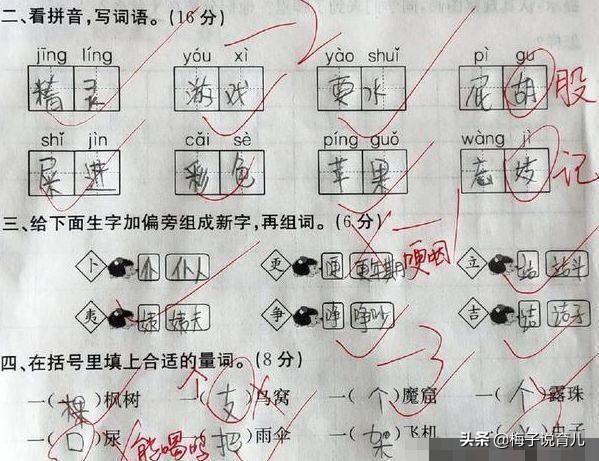 二、看拼音,写词语。(16分) -2
jīng líng yóu xì yào shuǐ pì gu
精 灵 游 戏 要 水 屁 胡 股
shǐ jìn cǎi sè píng guǒ wàng jì
屎 进 彩 色 苹 果 忘 记
三、给下面生字加偏旁组成新字,再组词。(6分) -1
卜 仆 仆人 更 更年期 哽咽 立 站 站斗
夷 姨 姨夫 争 净 净吵 吉 结 洁子
四、在括号里填上合适的量词。(8分) -3
一(棵)枫树 个 一(支)鸟窝 一(个)魔窟 一(个)露珠
一(口)尿 能喝吗 把)雨伞 一(架)飞机
头条 @梅子说育儿